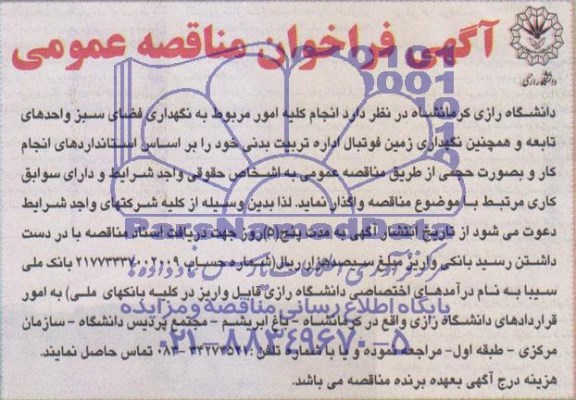 آگهی فراخوان مناقصه عمومی
دانشگاه رازی
دانشگاه رازی کرمانشاه در نظر دارد انجام کلیه امور مربوط به نگهداری فضای سبز واحدهای
تابعه و همچنین نگهداری زمین فوتبال اداره تربیت بدنی خود را بر اساس استانداردهای انجام
کار و بصورت حجمی از طریق مناقصه عمومی به اشخاص حقوقی واجد شرایط و دارای سوابق
کاری مرتبط با موضوع مناقصه واگذار نماید. لذا بدین وسیله از کلیه شرکتهای واجد شرایط
دعوت می شود از تاریخ انتشار آگهی به مدت پنج(۵)روز جهت دریافت اسناد مناقصه با در دست
داشتن رسید بانکی واریز مبلغ سیصدهزار ریال(شماره حساب ۲۱۷۷۳۳۳۷۰۰۲۰۰۹ بانک ملی
سیبا به نام درآمدهای اختصاصی دانشگاه رازی قابل واریز در کلیه بانکهای ملی) به امور
قراردادهای دانشگاه رازی واقع در کرمانشاه - باغ ابریشم - مجتمع پردیس دانشگاه - سازمان
مرکزی - طبقه اول- مراجعه نموده و یا با شماره تلفن: ۰۸۳ تماس حاصل نمایند.
هزینه درج آگهی بعهده برنده مناقصه می باشد.
ParsNamadData
پایگاه اطلاع رسانی مناقصه و مزایده
۰۲۱-۸۸۳۴۹۶۷۰-۵